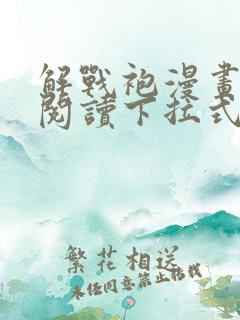 解戰袍漫畫
閱讀下拉式
繁花相送
未經同意禁止轉載